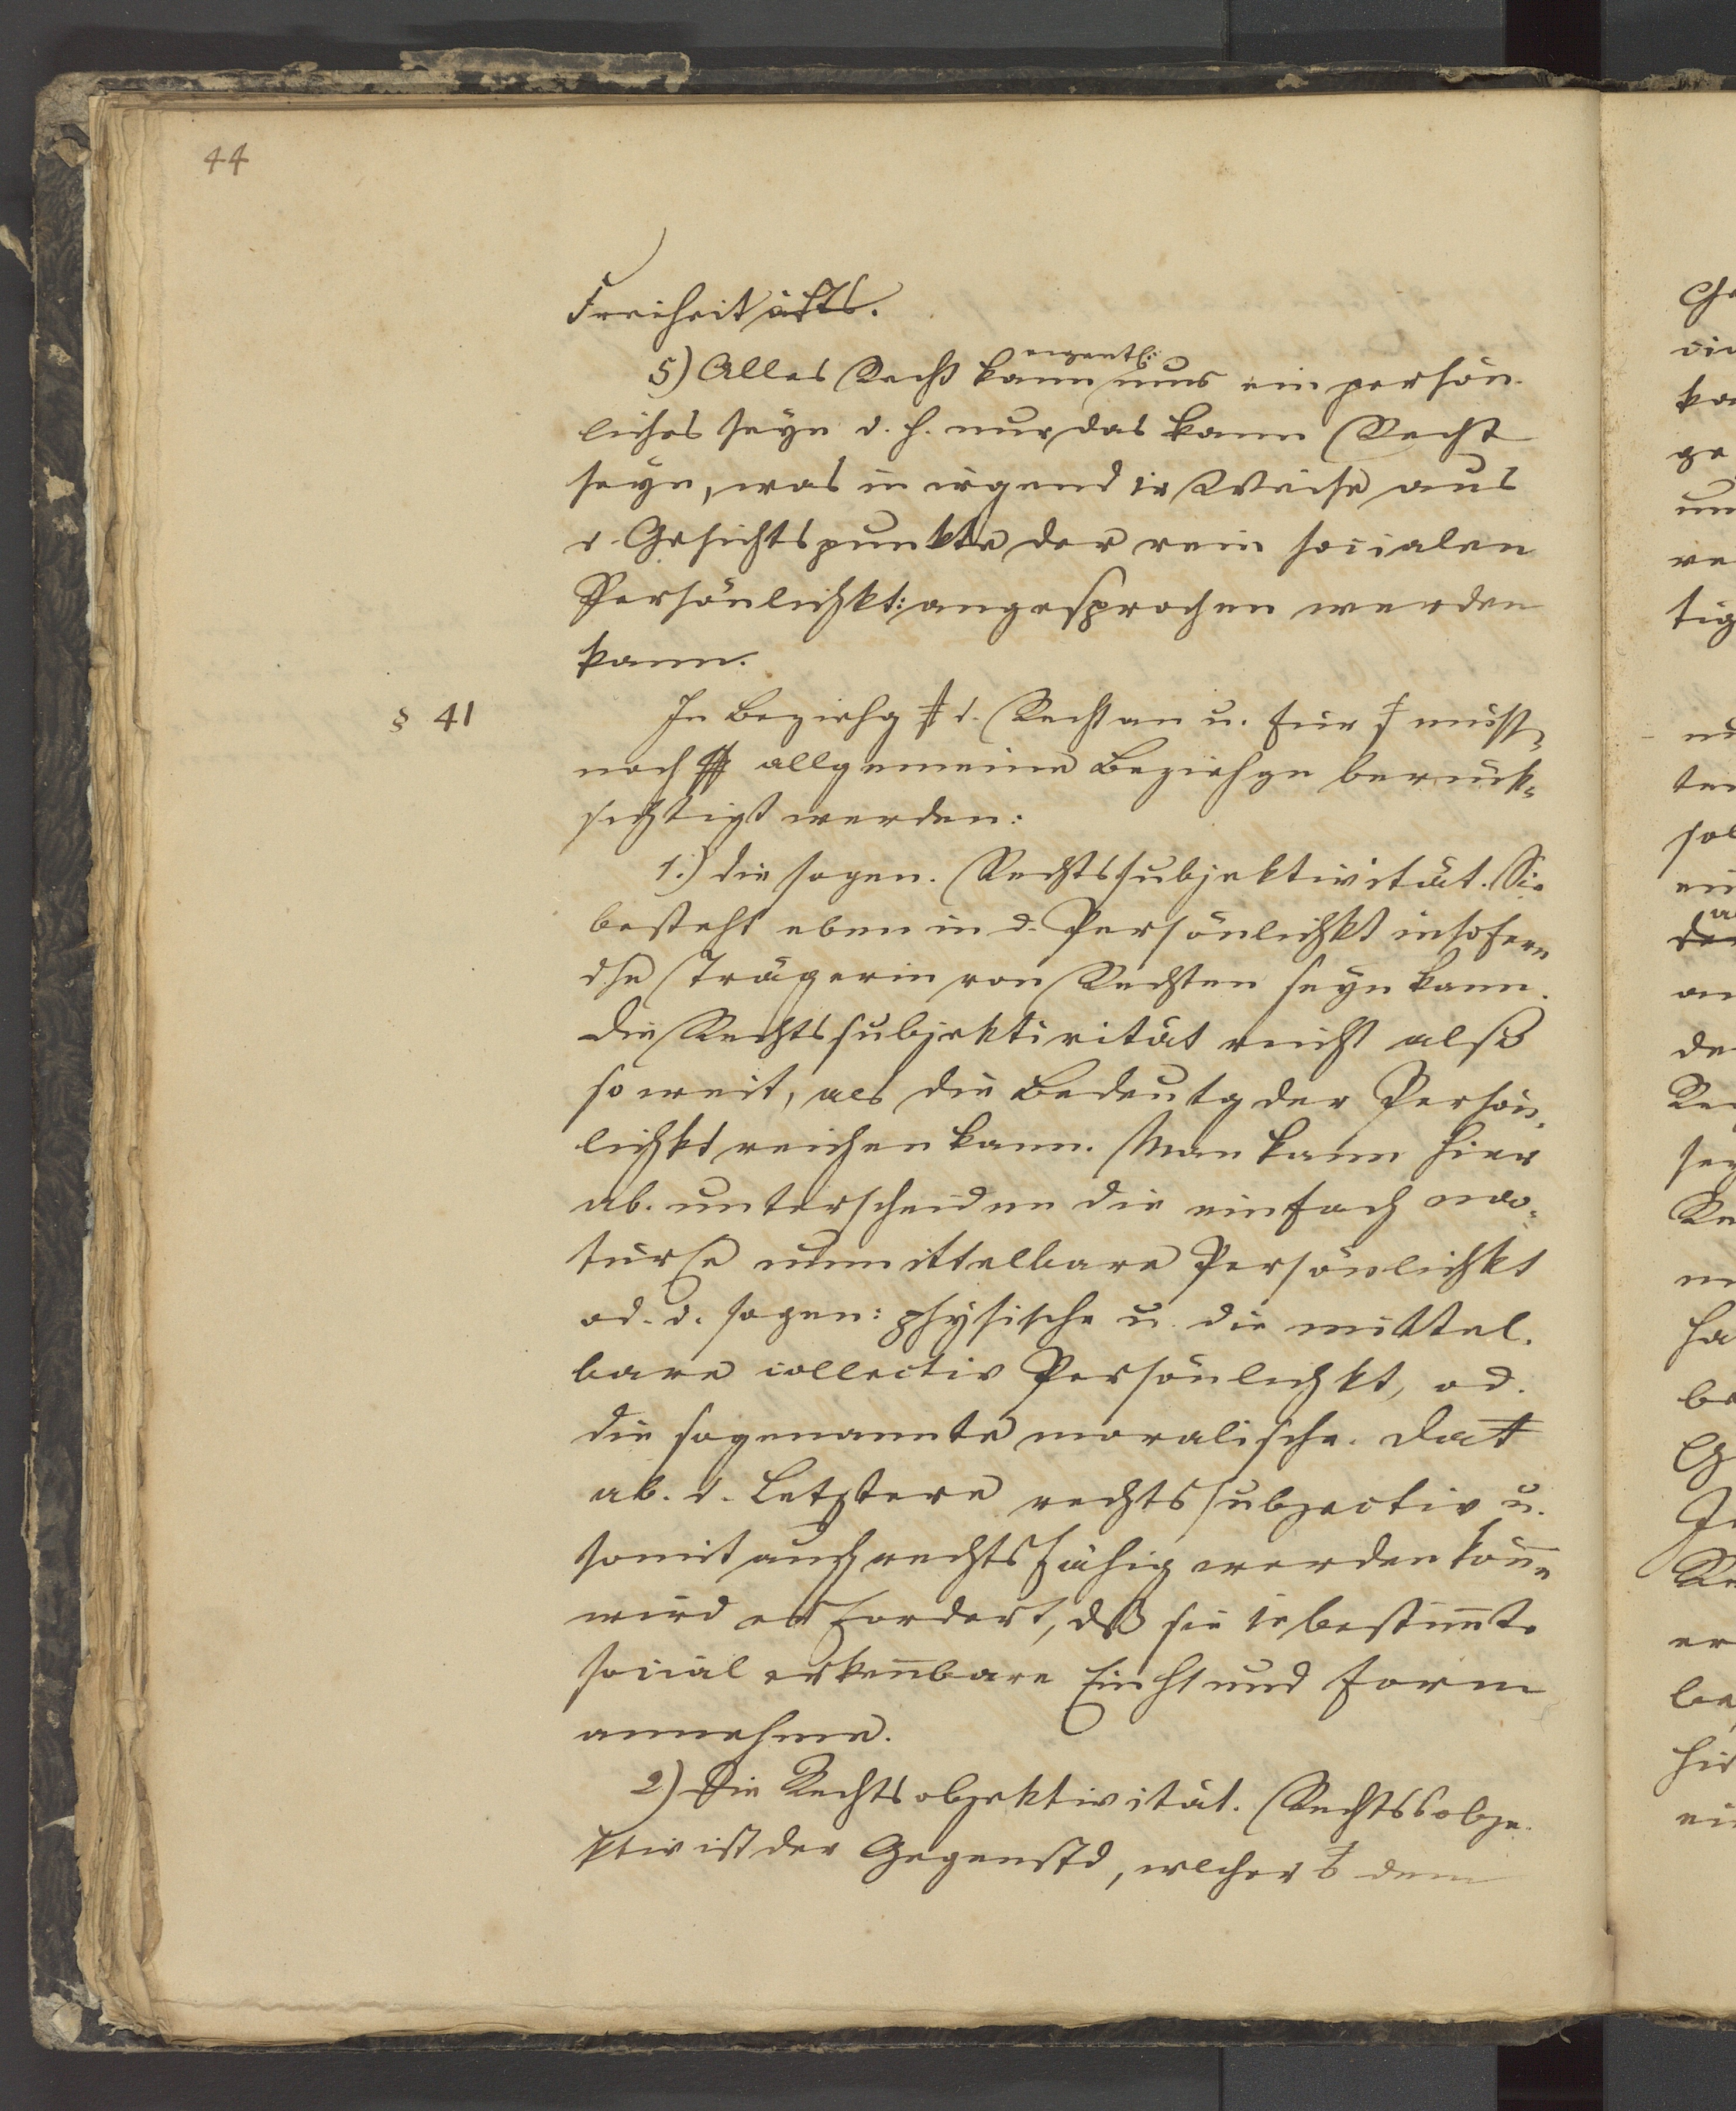 44
Freiheit
5) Alles Recht kann eigentl: nur ein persön-
liches seyn d. h. nur das kann Recht
seyn, was in irgend 1r Weise aus
d. Gesichtspunkte der rein socialen
Persönlichkt: angesprochen werden
kann.
§ 41
In Beziehg d. Recht an u. für müss
noch allgemeine Beziehgn berück-
sichtigt werden:
1.) die sogen. Rechtssubjektivität. Sie
besteht eben in d. Persönlichkt insofern
dse Trägerin von Rechten seyn kann.
Die Rechtssubjektivität reicht also
so weit, als die Bedeutg der Persön-
lichkt reichen kann. Man kann hier
ab. unterscheiden die einfach na-
türle unmittelbare Persönlichkt
od. d. sogen: physische u. die mittel-
bare collectiv Persönlichkt, od.
die sogenannte moralische. Dat
ab. d. Letztere rechtssubjectiv u.
somit auch rechtsfähig werden kön̅e
wird erfordert, dß sie 1e bestim̅te
social erken̅bare Einht und Form
annehme.
2) Die Rechtsobjektivität. Rechtsobje-
ktiv ist der Gegenstd, welcher dem